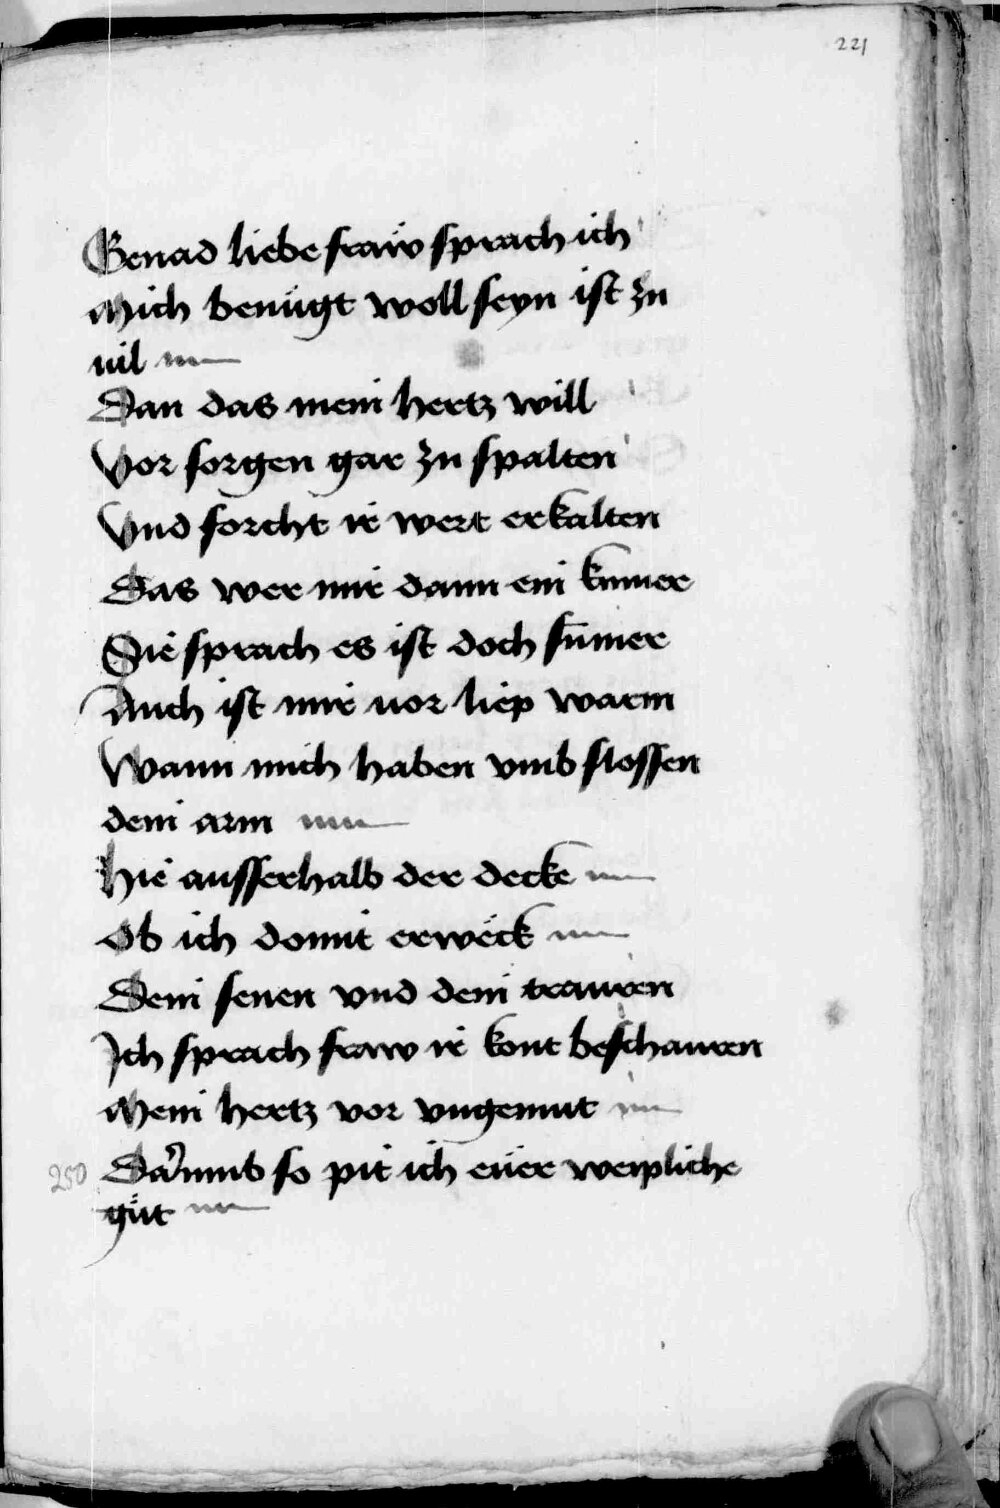 221
Genad liebe fraẅ sprach ich
Mich benügt woll seyn ist zu
uil
Dan das mein hertz will
Vor sorgen gar zu spalten
Vnd forcht ir wert erkalten
Das wer mir dann ein kumer
Sie sprach es ist doch sumer
Auch ist mir vor liep warm
Wann mich haben vmb slossen
dein arm
Hie ausserhalb der decke
Ob ich domit erwëck
Dein senen vnd dein trauren
Ich sprach fraw ir kont beschauren
Mein hertz vor vngemut
250 Darumb so pit ich eüer weipliche
güt